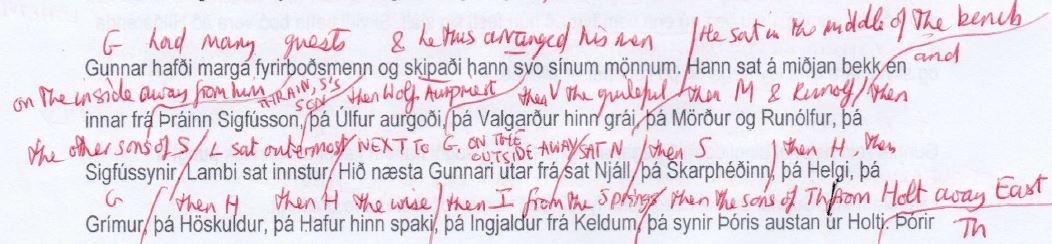 G had many guests & he thus arranged his men / He sat in the middle of the bench
Gunnar hafði marga fyrirboðsmenn og skipaði hann svo sínum mönnum. Hann sat á miðjan bekk en
and
on the inside away from him THRAIN, S'S SON then Wolf Aurpriest then V the guileful then M & Runolf / then
innar frá Þráinn Sigfússon, þá Úlfur aurgoði, þá Valgarður hinn grái, þá Mörður og Runólfur, þá
the other sons of S / L sat outermost / NEXT TO G, ON THE OUTSIDE AWAY / SAT N / then S / then H then
Sigfússynir, Lambi sat innstur. Hið næsta Gunnari utar frá sat Njáll, þá Skarphéðinn, þá Helgi, þá
G / then H then H the wise / then I from the Springs then the sons of Th from Holt away East
Grímur, þá Höskuldur, þá Hafur hinn spaki, þá Ingjaldur frá Keldum, þá synir Þóris austan úr Holti. Þórir
Th